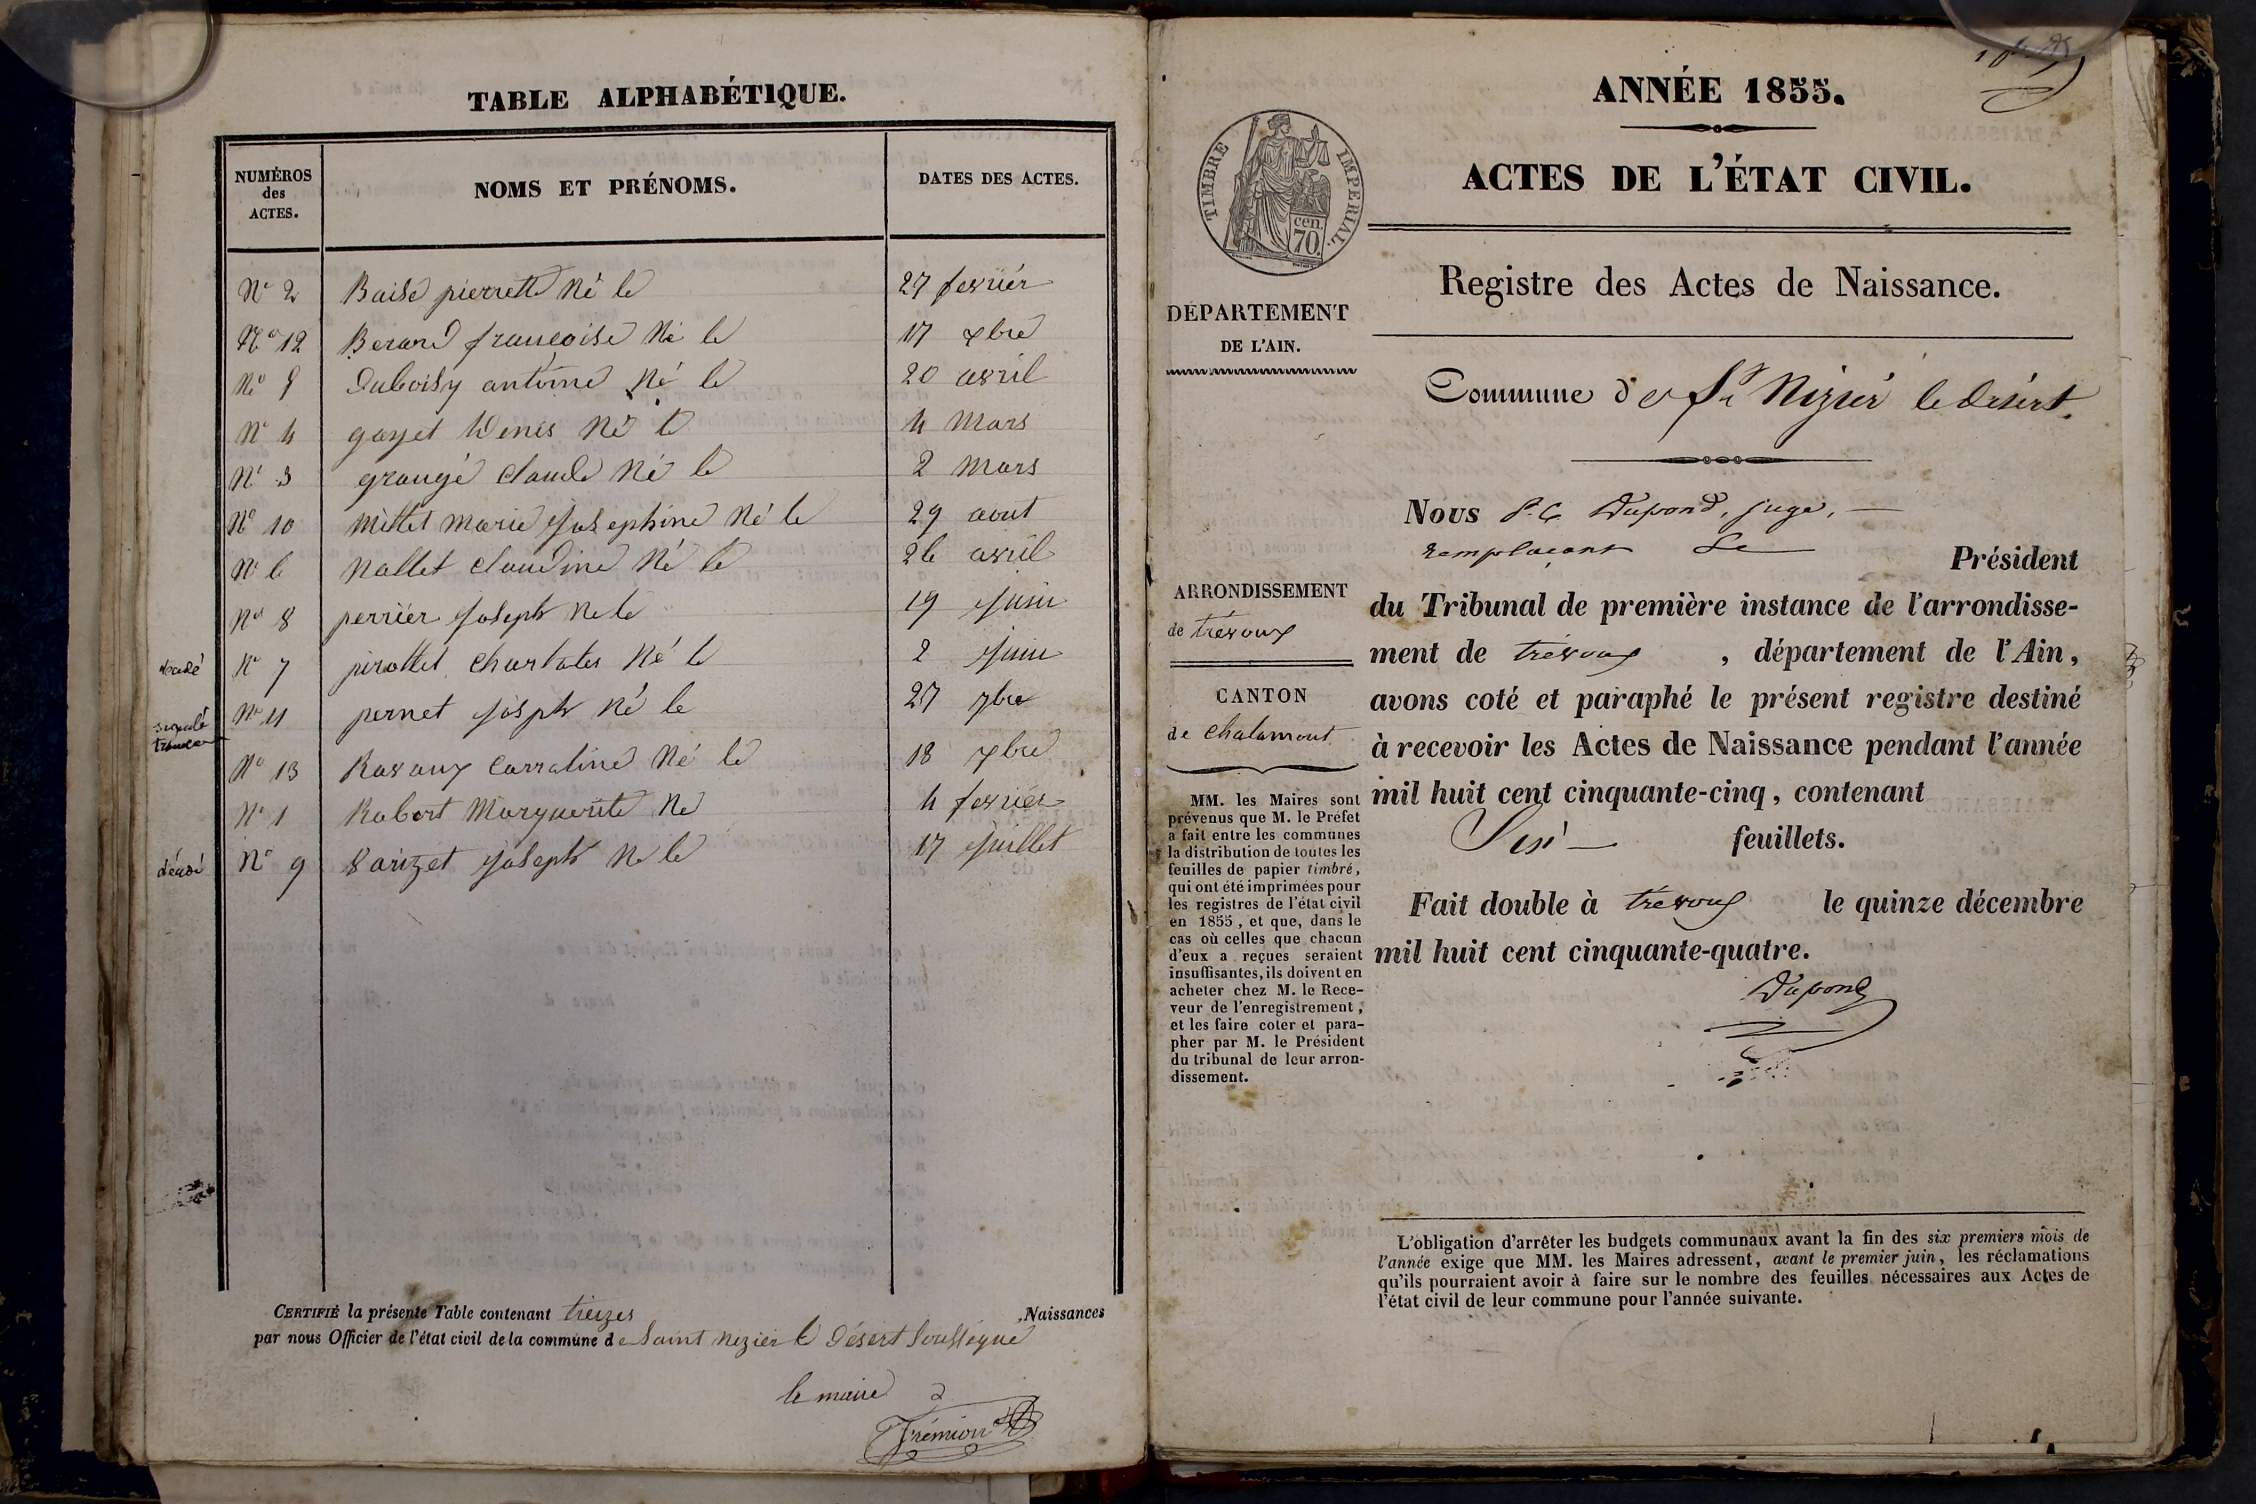 TABLE ALPHABÉTIQUE.
NUMÉROS
des
ACTES.
NOMS ET PRÉNOMS.
DATES DES ACTES.
N° 2 Baise pierrette Né le 27 fevrier
N° 12 Berard francoise Né le 17 xbre
N° 5 Duboisy antoine Né le 20 avril
N° 4 gayet Denis Né le 4 Mars
N° 3 grangé Claude Né le 2 Mars
N° 10 Millet Marie Josephine Né le 29 aout
N° 6 Nallet Claudine Né le 26 avril
N° 8 perrier Joseph Ne le 19 Juin
décédé N° 7 pirollet Né le 2 Juin
N° 11 pernet Josph Né le 27 7bre
N° 13 Ravaux Carroline Né le 18 xbre
N° 1 Robert Marguerite Ne 4 fevrier
décédé N° 9 Sarizet Joseph Ne le 17 Juillet
CERTIFIÉ la présente Table contenant treizes Naissances
par nous Officier de l'état civil de la commune de Saint Nizier le Désert Soussigné
le maire
Frémion
ANNÉE 1855.
ACTES DE L'ÉTAT CIVIL.
TIMBRE IMPERIAL.
cen.
70.
Registre des Actes de Naissance.
DÉPARTEMENT
DE L'AIN.
Commune de St Nizier le désert.
ARRONDISSEMENT
de trévoux
CANTON
de Chalamont
MM. les Maires sont
prévenus que M. le Préfet
a fait entre les communes
la distribution de toutes les
feuilles de papier timbré,
qui ont été imprimées pour
les registres de l'état civil
en 1855, et que, dans le
cas où celles que chacun
d'eux a reçues seraient
insuffisantes, ils doivent en
acheter chez M. le Rece-
veur de l'enregistrement,
et les faire coter et para-
pher par M. le Président
du tribunal de leur arron-
dissement.
Nous Dupond, juge,
remplaçant Le Président
du Tribunal de première instance de l'arrondisse-
ment de trévoux, département de l'Ain,
avons coté et paraphé le présent registre destiné
à recevoir les Actes de Naissance pendant l'année
mil huit cent cinquante-cinq, contenant
Six feuillets.
Fait double à trévoux le quinze décembre
mil huit cent cinquante-quatre.
Dupond
L'obligation d'arrêter les budgets communaux avant la fin des six premiers mois de
l'année exige que MM. les Maires adressent, avant le premier juin, les réclamations
qu'ils pourraient avoir à faire sur le nombre des feuilles nécessaires aux Actes de
l'état civil de leur commune pour l'année suivante.